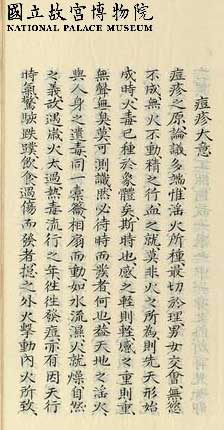 國立故宮博物院
NATIONAL PALACE MUSEUM
痘疹大意
痘疹之原論議多端惟活火所種最切於理男女交會無慾
不成無火不動精之行血之就莫非火之所為則先天形始
成時火毒已種於象體矣斯時也感之輕則輕感之重則重
無聲無臭莫可測識然必待時而發者何也葢天地之活火
與人身之遺毒同一橐籥相扇而動如水流濕火就燥自然
之義故遇歲火太過熱毒流行之年徃徃發痘亦有因天行
時氣驚駭跌蹼飲食過傷而發者揔之外火擊動內火所致